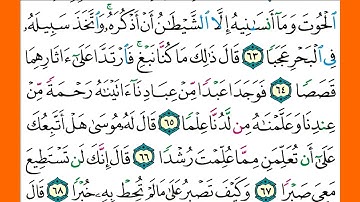 ٱلْحُوتَ وَمَآ أَنسَىٰنِيهُ إِلَّا ٱلشَّيْطَٰنُ أَنْ أَذْكُرَهُۥ ۚ وَٱتَّخَذَ سَبِيلَهُۥ
فِى ٱلْبَحْرِ عَجَبًا ﴿٦٣﴾ قَالَ ذَٰلِكَ مَا كُنَّا نَبْغِ ۚ فَٱرْتَدَّا عَلَىٰٓ ءَاثَارِهِمَا
قَصَصًا ﴿٦٤﴾ فَوَجَدَا عَبْدًا مِّنْ عِبَادِنَآ ءَاتَيْنَٰهُ رَحْمَةً مِّنْ
عِندِنَا وَعَلَّمْنَٰهُ مِن لَّدُنَّا عِلْمًا ﴿٦٥﴾ قَالَ لَهُۥ مُوسَىٰ هَلْ أَتَّبِعُكَ
عَلَىٰٓ أَن تُعَلِّمَنِ مِمَّا عُلِّمْتَ رُشْدًا ﴿٦٦﴾ قَالَ إِنَّكَ لَن تَسْتَطِيعَ
مَعِىَ صَبْرًا ﴿٦٧﴾ وَكَيْفَ تَصْبِرُ عَلَىٰ مَا لَمْ تُحِطْ بِهِۦ خُبْرًا ﴿٦٨﴾ قَالَ